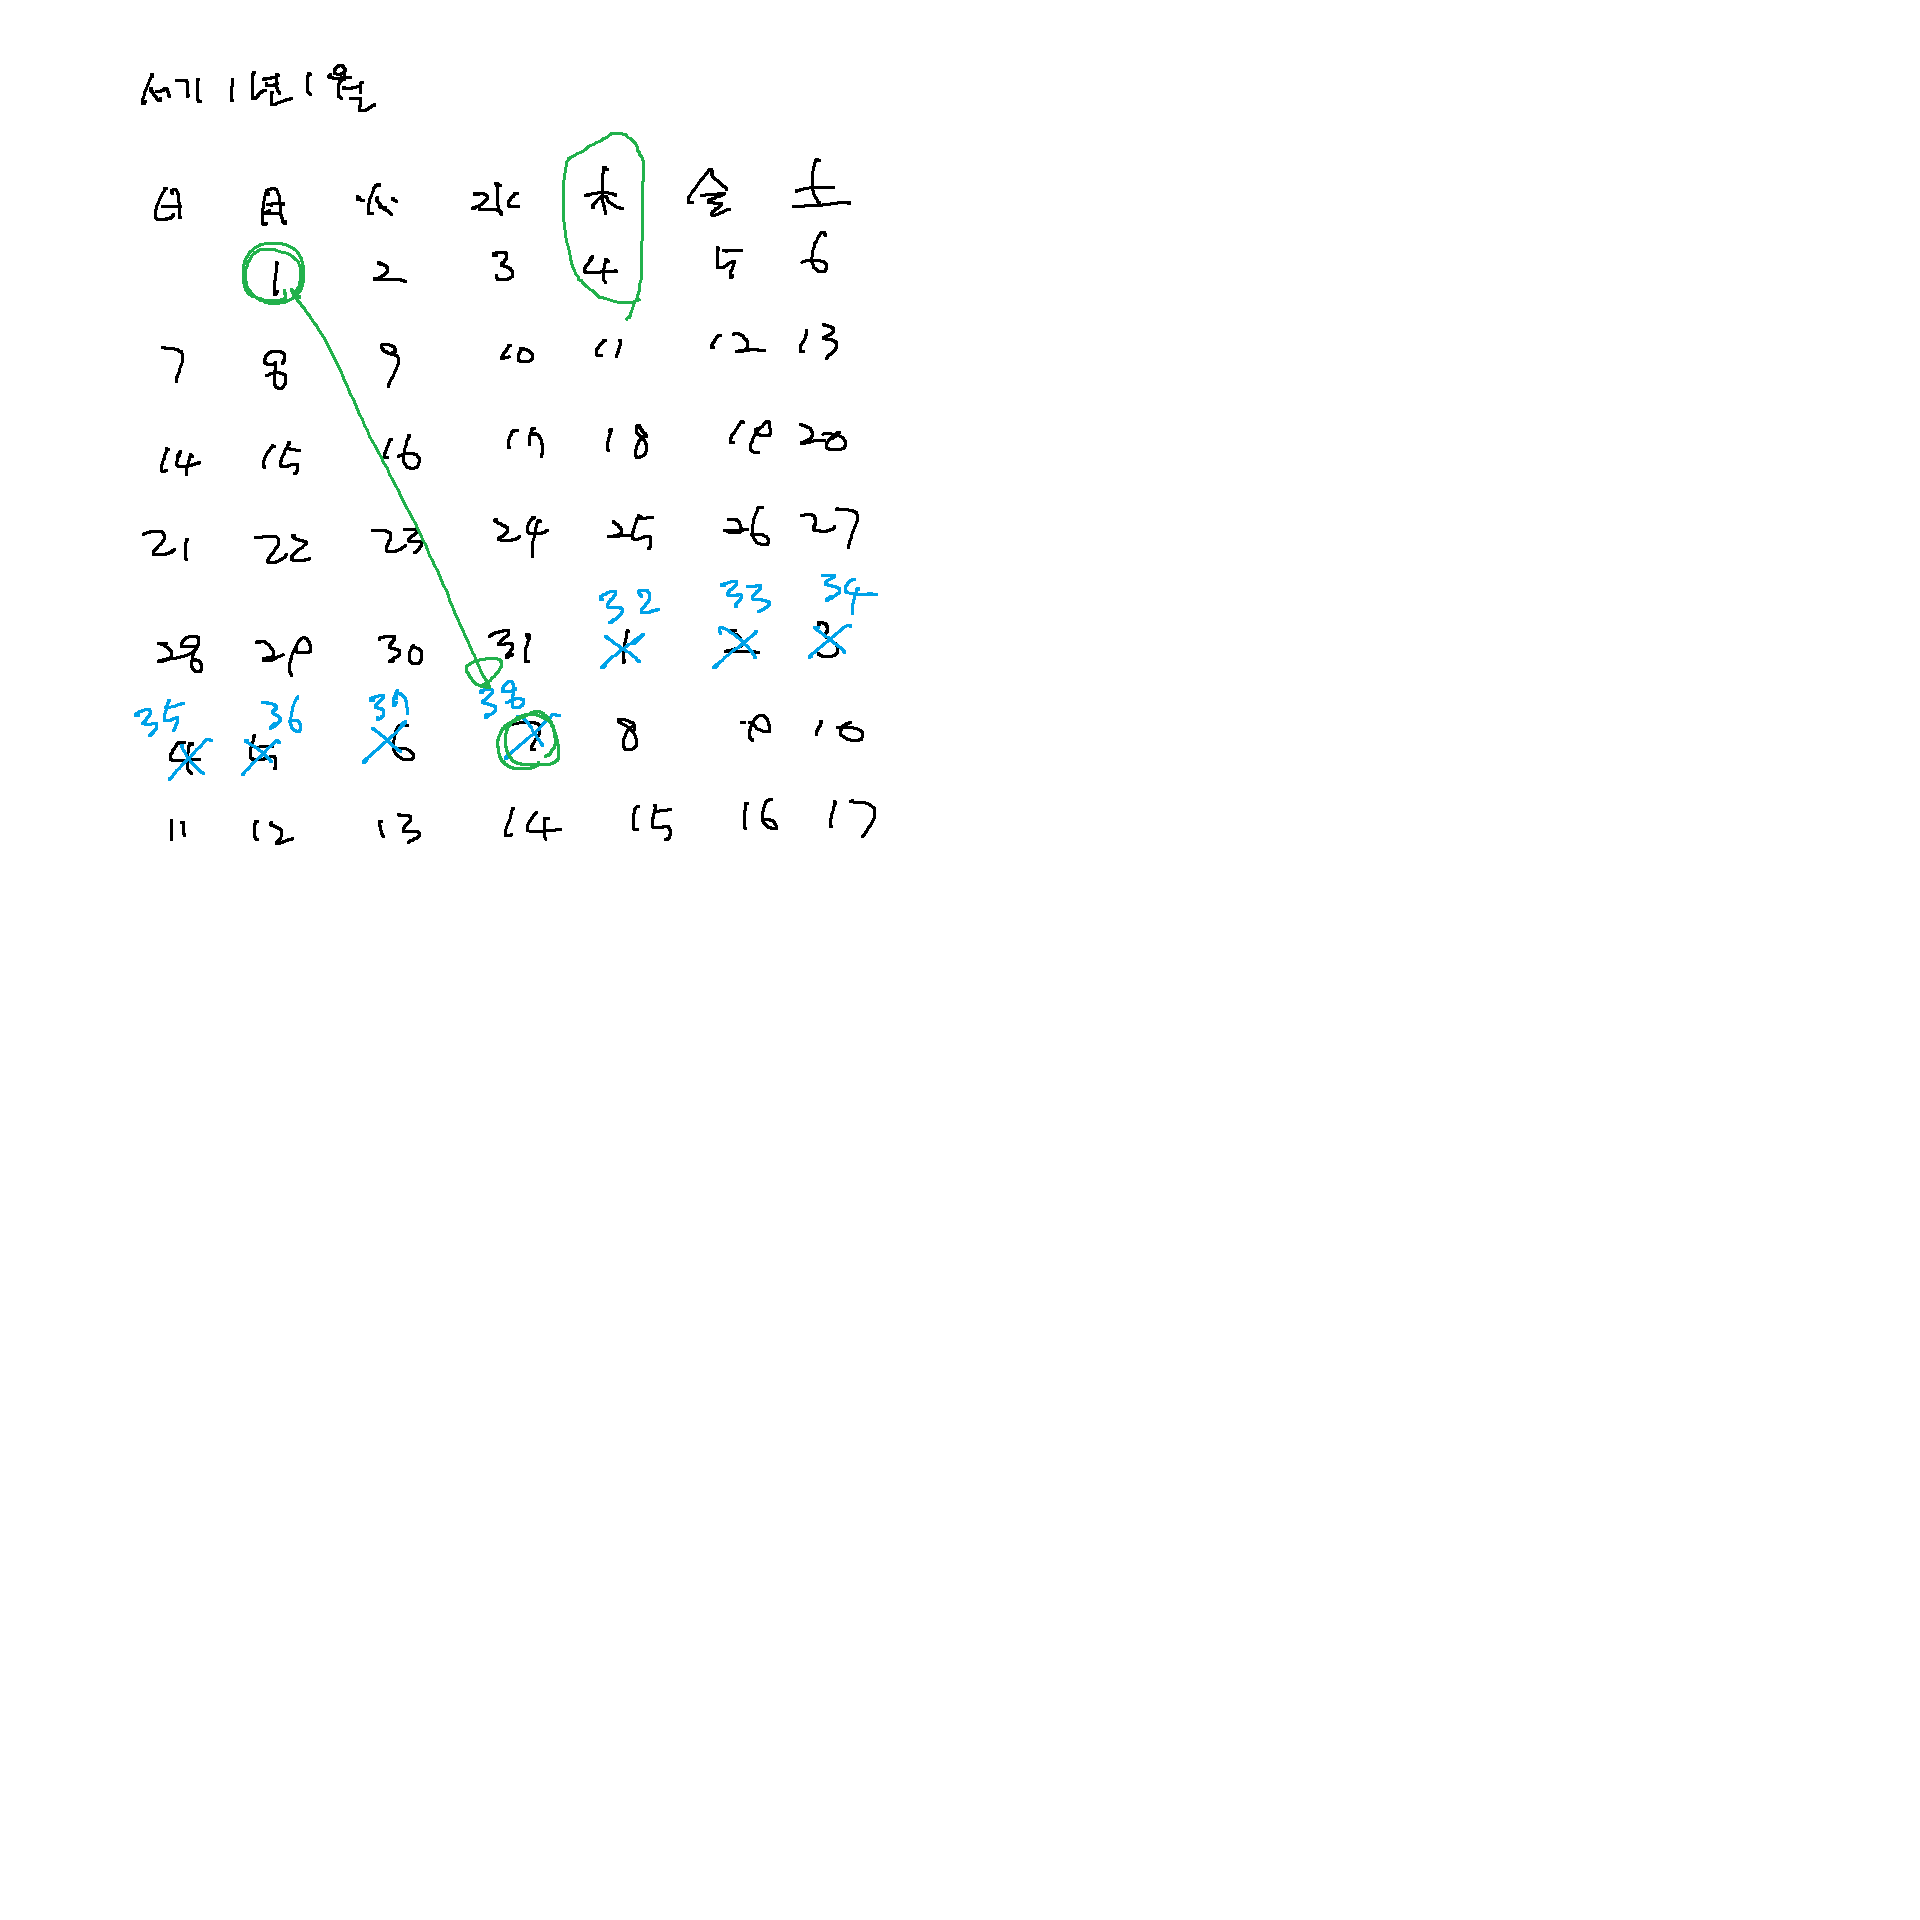 서기 1년 1월
日 月 火 水 木 金 土
1 2 3 4 5 6
7 8 9 10 11 12 13
14 15 16 17 18 19 20
21 22 23 24 25 26 27
32 33 34
28 29 30 31 1 2 3
35 36 37 38
4 5 6 7 8 9 10
11 12 13 14 15 16 17